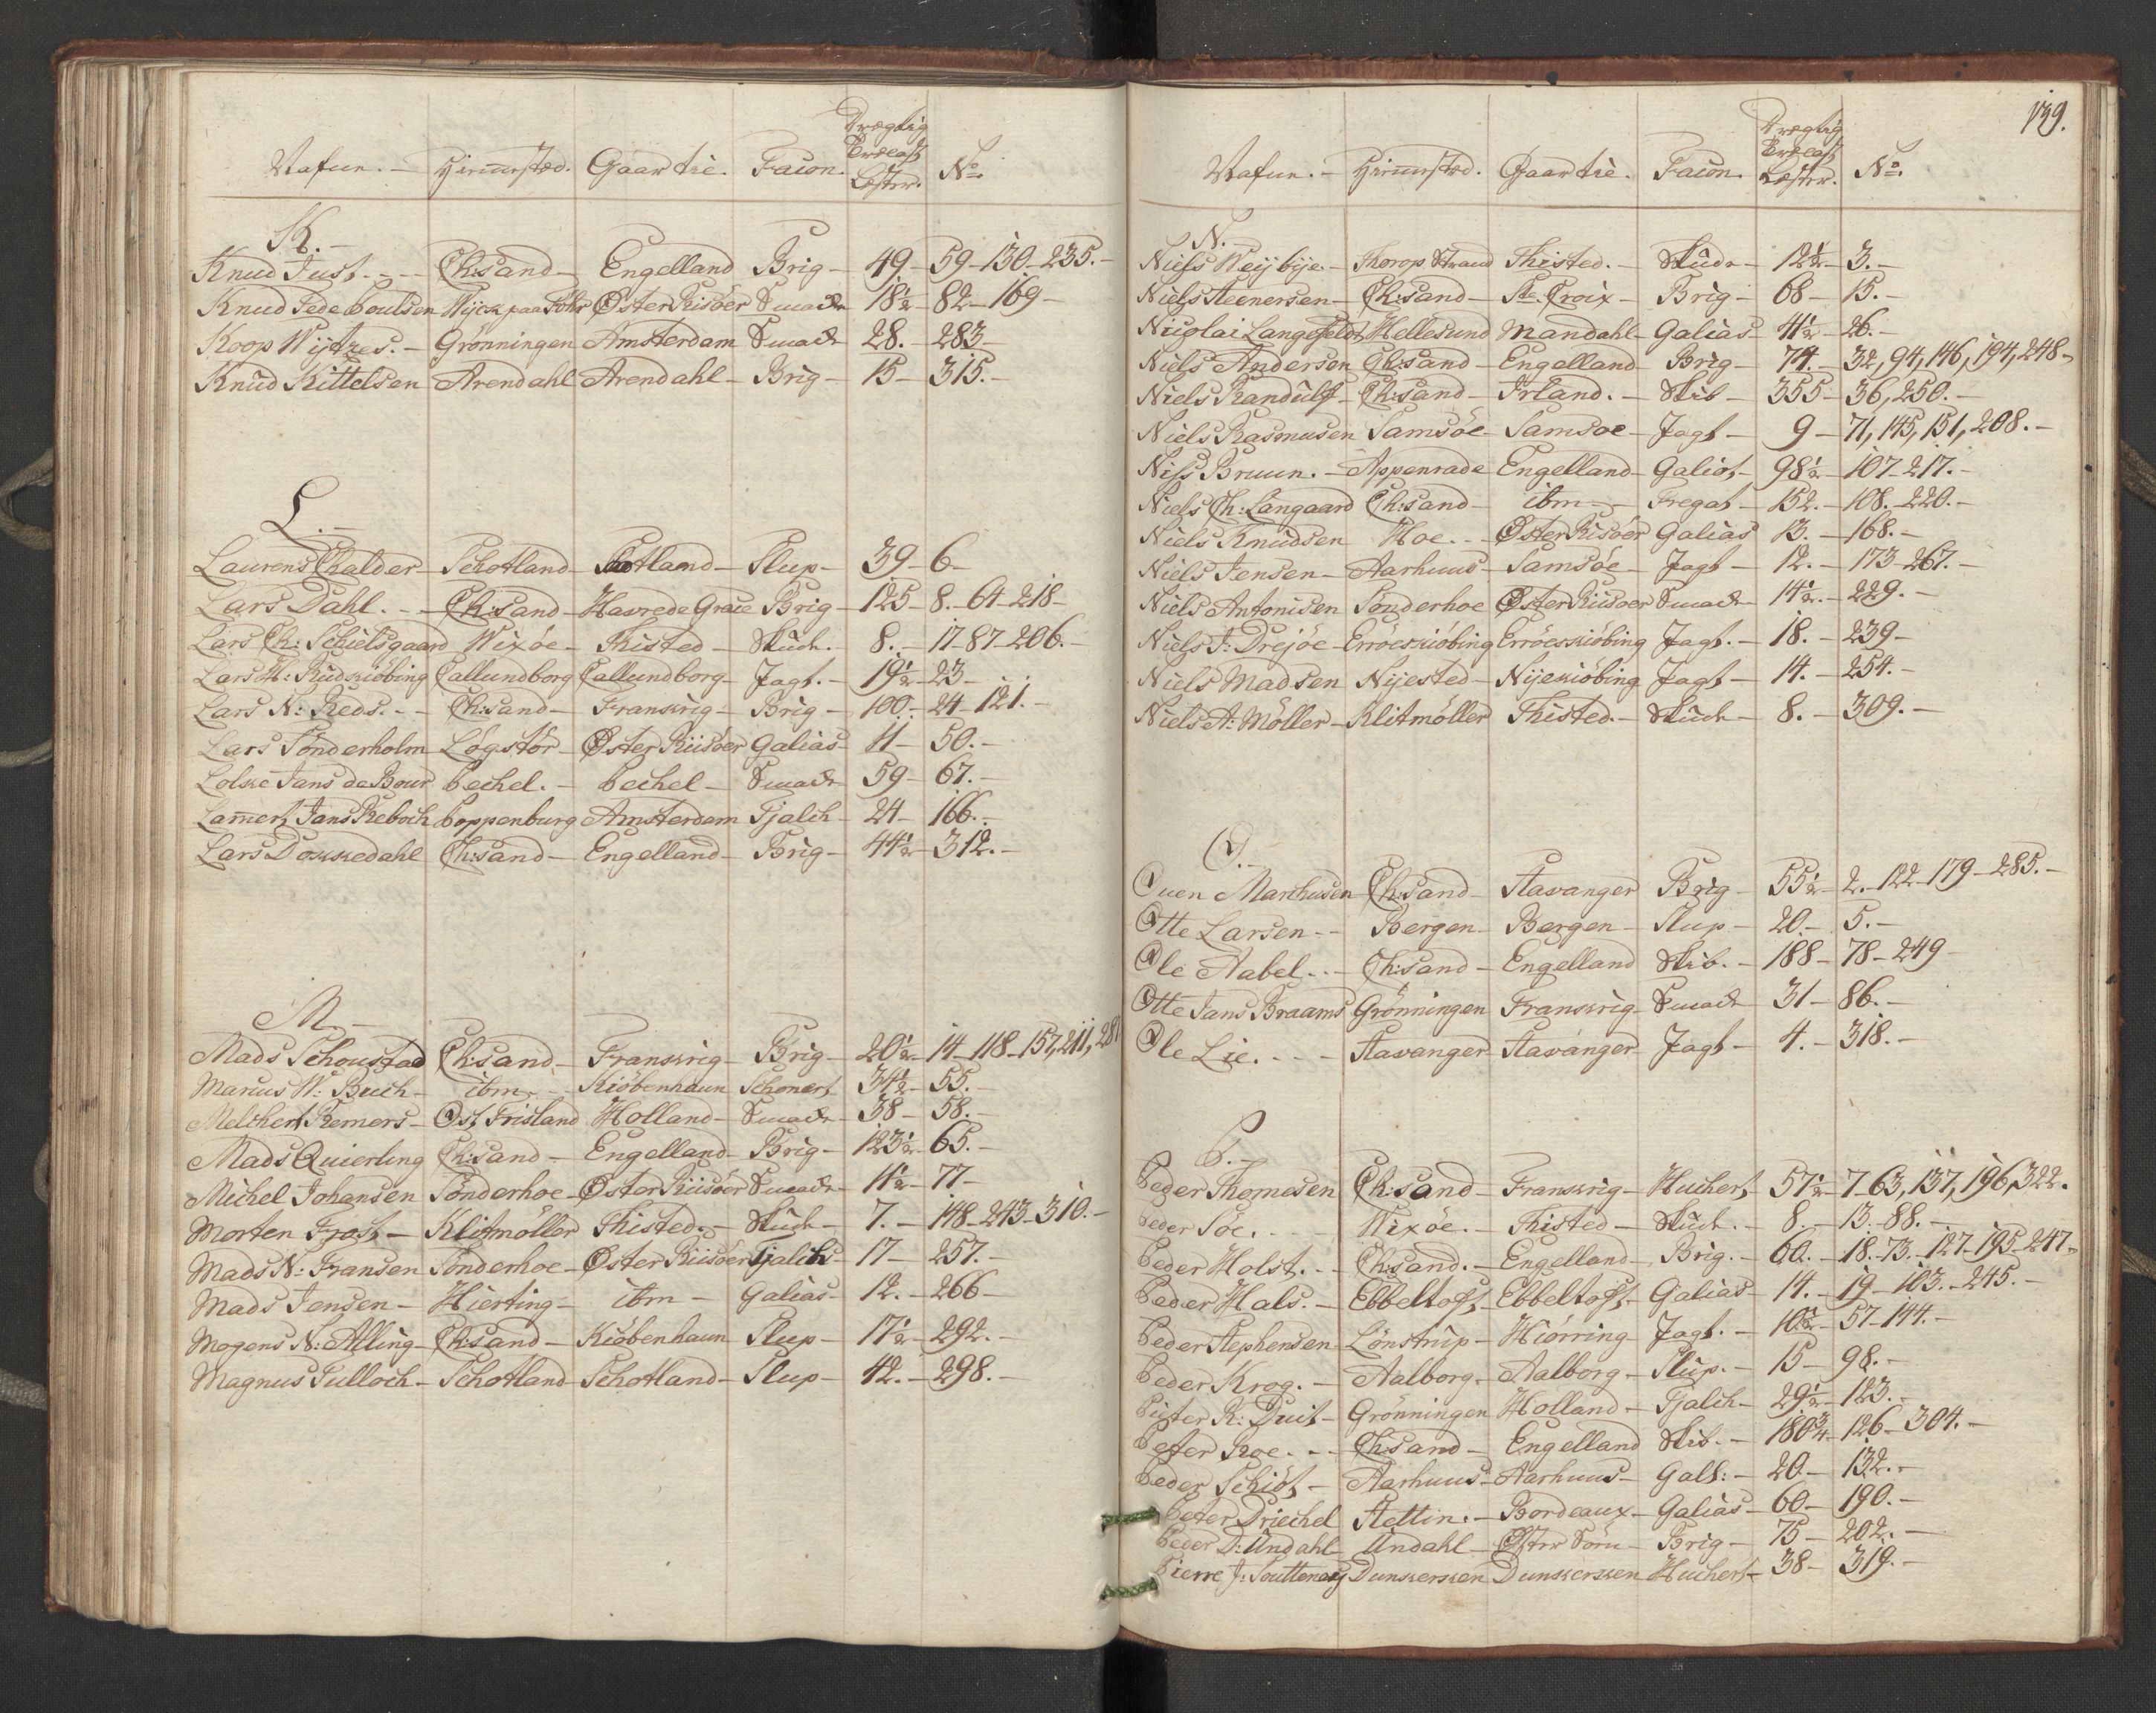 Drægtig
Træelast
Nafne. - Hiemsted. Gaar til. Facon. Læster. No.
K. -
Knud Just. - - Ch:sand - Engelland Brig - 49. - 59 - 130 - 235. -
Knud Pede Poulsen Wyck paa Föhr Øster Risöer Smack 18½ - 82 - 169 -
Koop Wytzes. - Grönningen Amsterdam Smack 28. - 283 -
Knud Kittelsen Arendahl Arendahl - Brig - 15 - 315. -
L. -
Laurens Chalder - Schotland - Schotland - Slup - 39 - 6 -
Lars Dahl. - - Ch:sand - Havre de Grace Brig - 125 - 8. - 64 - 218 -
Lars Ch: Schielsgaard Wixöe - Thisted - Skude. 8. - 17 - 87 - 206. -
Lars H: Rudkiöbing Callundborg Callundborg - Jagt. - 19½ - 23 -
Lars N: Reds. - - Ch:sand - Frankrig - Brig - 100 - 24 - 121. -
Lars Sönderholm Lögstör - Øster Riisöer Galias - 11 - 50. -
Lolke Jans de Bour Pechel. - Pechel - Smack 59 - 67. -
Lamert Jans Reboch Poppenburg Amsterdam Tjalck - 24 - 166. -
Lars Dokkedahl Ch:sand - Engelland - Brig - 44½ - 312. -
M. -
Mads Schoustad Ch:sand - Frankrig - Brig - 20½ - 14 - 118 - 157, 211, 281
Marius W: Buch - ibm - Kiöbenhaun Schonert 34½ - 55. -
Melchert Remers - Ost Frisland Holland - Smack 38 - 58. -
Mads Quierling Ch:sand - Engelland - Brig - 123½ - 65. -
Michel Johansen Sönderhoe - Øster Riisöer Smack 11½ - 77 -
Morten Frost - Klitmöller Thisted. - Skude - 7. - 148 - 243 - 310. -
Mads N: Fransen Sönderhoe - Øster Riisöer Tjalck - 17 - 257. -
Mads Jensen - Hierting - ibm - Galias - 12. - 266 -
Mogens N: Alling - Ch:sand - Kiöbenhaun Slup - 17½ - 292. -
Magnus Tulloch - Schotland Schotland - Slup - 42. - 298. -
139.
Drægtig
Træelast
Nafne. - Hiemsted. Gaar til. Facon. Læster. No.
N. -
Niels Weybye. - Thorop Strand Thisted. - Skude - 12½ - 3. -
Niels Steenersen - Ch:sand - Ste. Croix - Brig - 68 - 15. -
Nicolai Langefeldt Hellesund Mandahl - Galias - 4½ - 26. -
Niels Andersen Ch:sand - Engelland Brig - 74. - 32, 94, 146, 194, 248 -
Niels Randulf - Ch:sand - Irland. - Skib - 355 - 36, 250. -
Niels Rasmusen Samsöe - Samsoe - Jagt - 9 - 71, 145, 151, 208. -
Niss Bruun. - Appenrade Engelland - Galiot - 98½ - 107 - 217. -
Niels Ch: Langaard Ch:sand - ibm - Fregat - 152. - 108. - 220. -
Niels Knudsen Hoe. - - Øster Risöer Galias 13. - 168. -
Niels Jensen - Aarhuus - Samsöe - Jagt - 12. - 173 - 267. -
Niels Antonisen Sönderhoe Øster Riisoer Smack - 14½ - 229. -
Niels J: Drejöe - Erröeskiöbing Erröeskiöbing Jagt. - 18. - 239 -
Niels Madsen Nyested - Nyekiöbing Jagt - 14. - 254. -
Niels A: Möller - Klitmöller Thisted. - Skude - 8. - 309. -
O. -
Ouen Marchusen Ch:sand - Stavanger Brig - 55½ - 2. - 122 - 179 - 285. -
Otte Larsen - - Bergen - Bergen - Slup - 20. - 5. -
Ole Aabel. - - Ch:sand - Engelland Skib. - 188 - 78 - 249 -
Otte Jans Braams Grönningen Frankrig Smack 31 - 86. -
Ole Lie. - - - Stavanger Stavanger Jagt - 4. - 318. -
P. -
Peder Thomesen Ch:sand - Frankrig - Huckert 57½ - 7 - 63, 137, 196, 322.
Peder Soe. - - Wixöe. - Thisted - Skude. - 8. - 13. - 88. -
Peder Holst. - - Ch:sand. - Engelland - Brig. - 60. - 18. - 73. - 127 - 195 - 247 -
Peder Hals. - Ebbeltoft Ebbeltoft - Galias - 14. - 19 - 103. - 245. -
Peder Stephensen Lönstrup - Hiörring - Jagt. - 10½ - 57 - 144. -
Peder Krog. - Aalborg - Aalborg - Slup. - 15 - 98. -
Pieter R: Duit - Grönningen Holland - Tjalck - 29½ - 123. -
Peter Roe. - - Ch:sand - Engelland Skib. - 180¾ - 126 - 304. -
Peder Schiöt - Aarhuus - Aarhuus - Galt: - 20 - 132. -
Peter Driechel Stettin. - Bordeaux - Galias - 60 - 190. -
Peder D: Undahl - Undahl - Brig - 75 - 202. -
Pierre J: Souttenay Dunkerken Dunkerken Huckert - 38 - 319. -